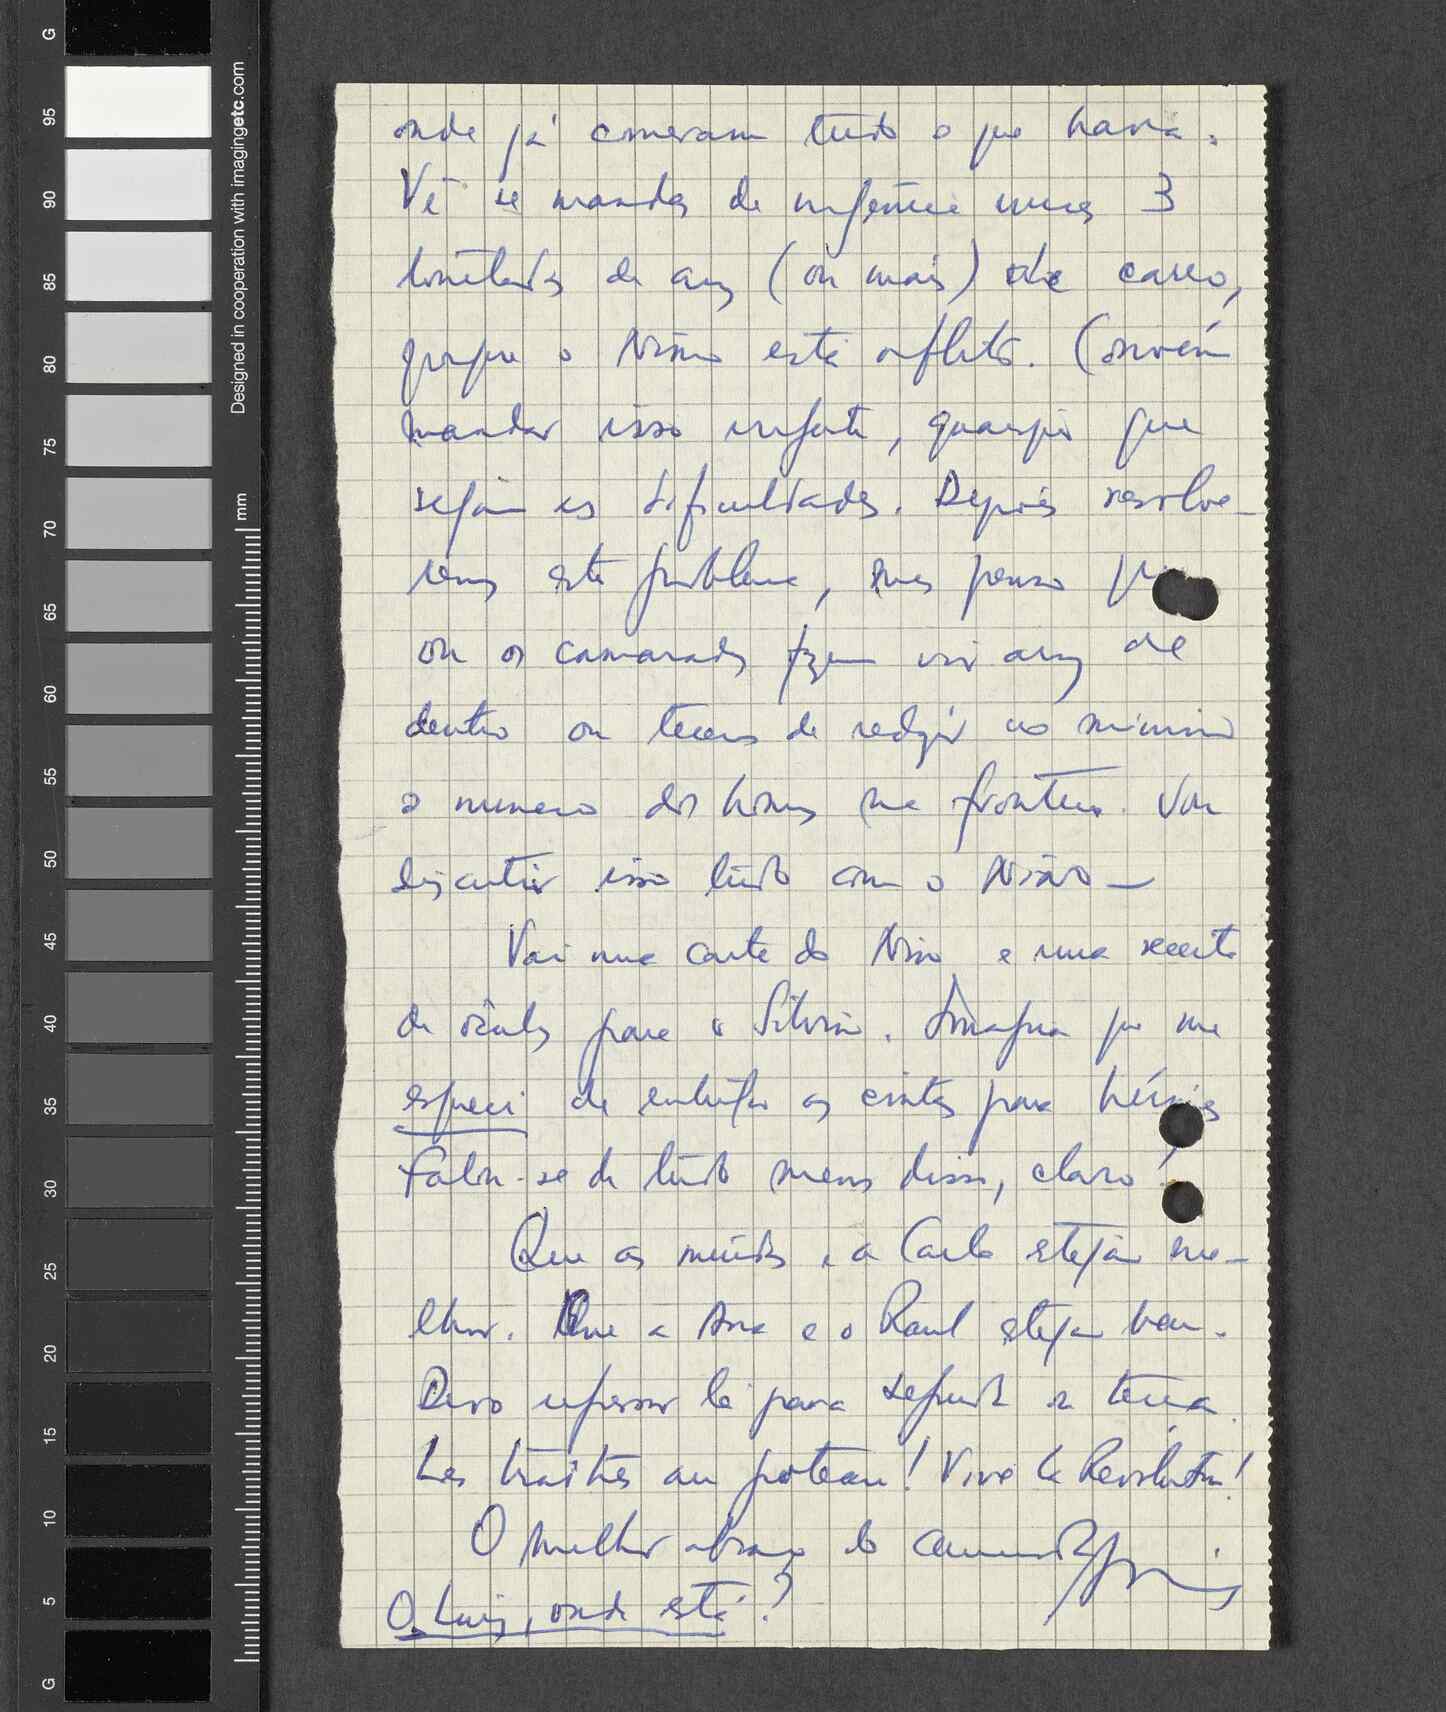 onde já comeram tudo o que havia.
Vê se mandas de urgência umas 3
toneladas de arroz (ou mais) de carro,
porque o Nino está aflito. Convém
mandar isso urgente, quaisquer que
sejam as dificuldades. Depois resolve-
remos este problema, mas penso que
ou os camaradas fazem vir arroz de
dentro ou temos de reduzir ao mínimo
o numero dos homens na fronteira. Vou
discutir isso tudo com o Nino —
Vai uma carta do Nino e uma receita
de óculos para o . Imagina que me
esqueci de entregar as cintas para hérnias
Falou-se de tudo menos disso, claro!
Que os miúdos e a Carlo estejam me-
lhor. Que a Ana e o Raul estejam bem.
Devo regressar lá para segunda ou terça.
Les traîtres au poteau! Vive la Revolution!
O melhor abraço do camarada
O Luiz, onde está?
G
95
90
85
80
75
70
65
60
55
50
45
40
35
30
25
20
15
10
5
G
Designed in cooperation with imagingetc.com
mm